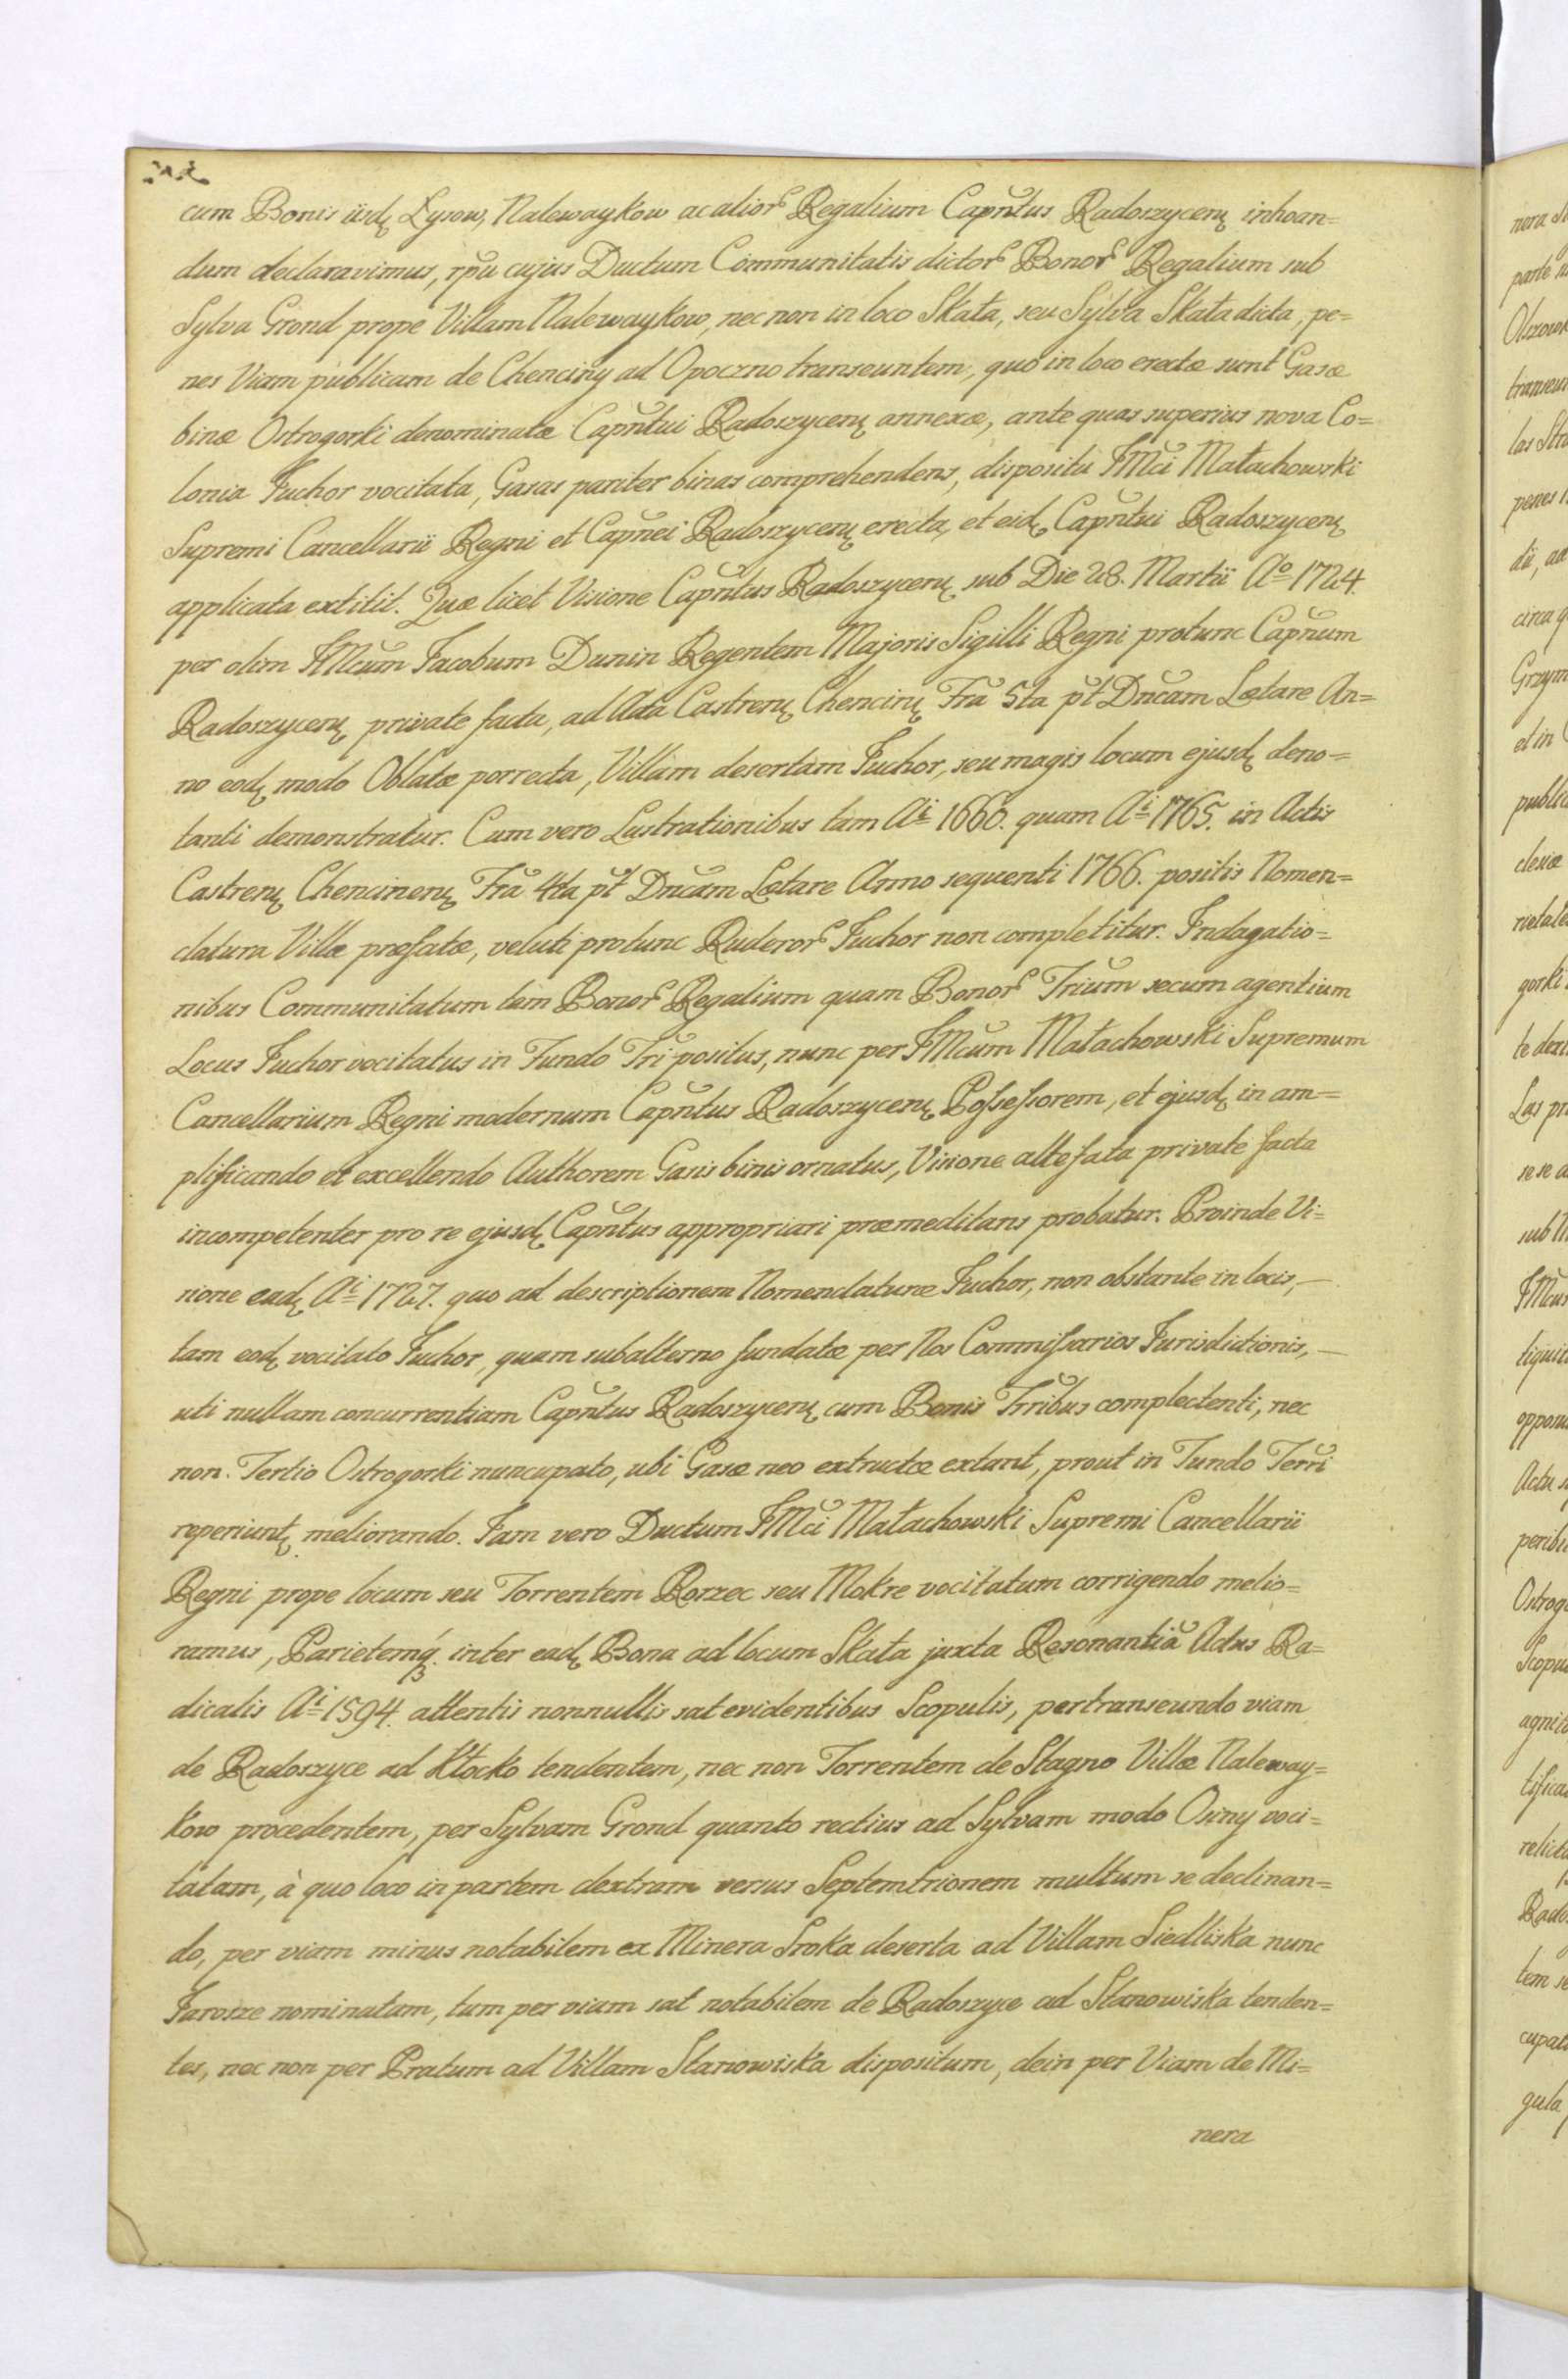 cum Bonis iisdę Łysow, Nalewaykow ac alior Regalium Capńtus Radoszyceń inhoan=
dum declaravimus, rp̃u cujus Ductum Communitatis dictor Bonor Regalium sub
Sylva Grond prope Villam Nalewaykow, nec non in loco Skała, seu Sylva Skała dicta, pe=
nes Viam publicam de Chenciny ad Opoczno transeuntem, quo in loco erectæ sunt Gasæ
binæ Ostrogorki denominatæ Capńtui Radoszyceń annexæ, ante quas superius nova Co=
lonia Juchor vocitata, Gasas pariter binas comprehendens, dispositu JMci Małachowski
Supremi Cancellarii Regni et Capnei Radoszyceń erecta, et eidę Capńtui Radoszyceń
applicata extitit. Quæ licet Visione Capńtus Radoszyceń sub Die 28. Martii Aº 1724.
per olim JMcum Jacobum Dunin Regentem Majoris Sigilli Regni protunc Capnum
Radoszyceń private facta, ad Acta Castreń Chenciń Fra 5ta p̃t Dncam Lætare An=
no eodę modo Oblatæ porrecta, Villam desertam Juchor, seu magis locum ejusdę deno=
tanti demonstratur. Cum vero Lustrationibus tam Ai 1660. quam Ai 1765. in Actis
Castreń Chencineń Fra 4ta p̃t Dncam Lætare Anno sequenti 1766. positis Nomen=
clatura Villæ præfatæ, veluti protunc Ruderor Juchor non completitur. Indagatio=
nibus Communitatum tam Bonor Regalium quam Bonor Trium secum agentium
Locus Juchor vocitatus in Fundo Tri positus, nunc per JMcum Małachowski Supremum
Cancellarium Regni modernum Capńtus Radoszyceń Possessorem, et ejusdę in am=
plificando et excellendo Authorem Gasis binis ornatus, Visione altefata private facta
incompetenter pro re ejusdę Capńtus appropriari præmeditans probatur. Proinde Vi=
sione eadę Ai 1727. quo ad descriptionem Nomenclaturæ Juchor, non obstante in locis,
tam eodę vocitato Juchor, quam subalterno fundatæ per Nos Commissarios Jurisdictionis,
uti nullam concurrentiam Capńtus Radoszyceń cum Bonis Trribus complectenti, nec
non. Tertio Ostrogorki nuncupato, ubi Gasæ neo extructæ extant, prout in Fundo Terri
reperiuntę meliorando. Jam vero Ductum JMci Małachowski Supremi Cancellarii
Regni prope locum seu Torrentem Borzec seu Mokre vocitatum corrigendo melio=
ramus, Parietemq́ inter eadę Bona ad locum Skała juxta Resonantiã Actus Ra=
dicalis Ai 1594. attentis nonnullis sat evidentibus Scopulis, pertranseundo viam
de Radoszyce ad Kłocko tendentem, nec non Torrentem de Stagno Villæ Naleway=
kow procedentem, per Sylvam Grond quanto rectius ad Sylvam modo Osiny voci=
tatam, à quo loco in partem dextram versus Septemtrionem multum se declinan=
do, per viam minus notabilem ex Minera Sroka deserta ad Villam Siedliska nunc
Jarosze nominatam, tum per viam sat notabilem de Radoszyce ad Stanowiska tenden=
tes, nec non per Pratum ad Villam Stanowiska dispositum, dein per Viam de Mi=
nera